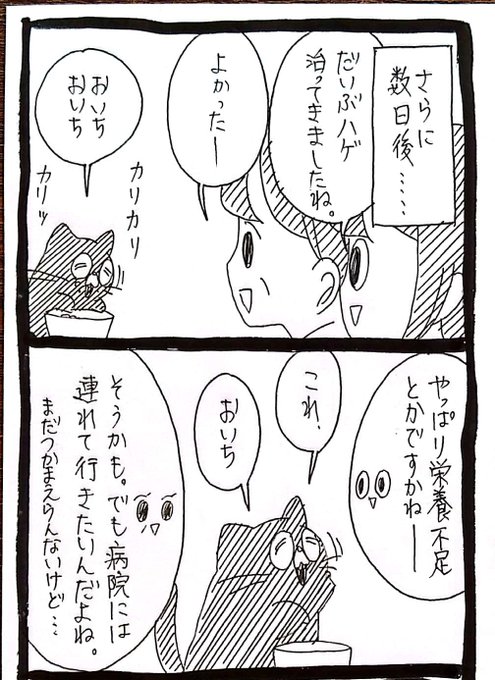 さらに
数日後‥‥‥
だいぶハゲ
治ってきましたね。
よかったー
カリカリ
おいち
おいち
カリッ
やっぱり栄養不足
とかですかねー
これ、
おいち
そうかも。でも病院には
連れて行きたいんだよね。
まだつかまえらんないけど‥‥